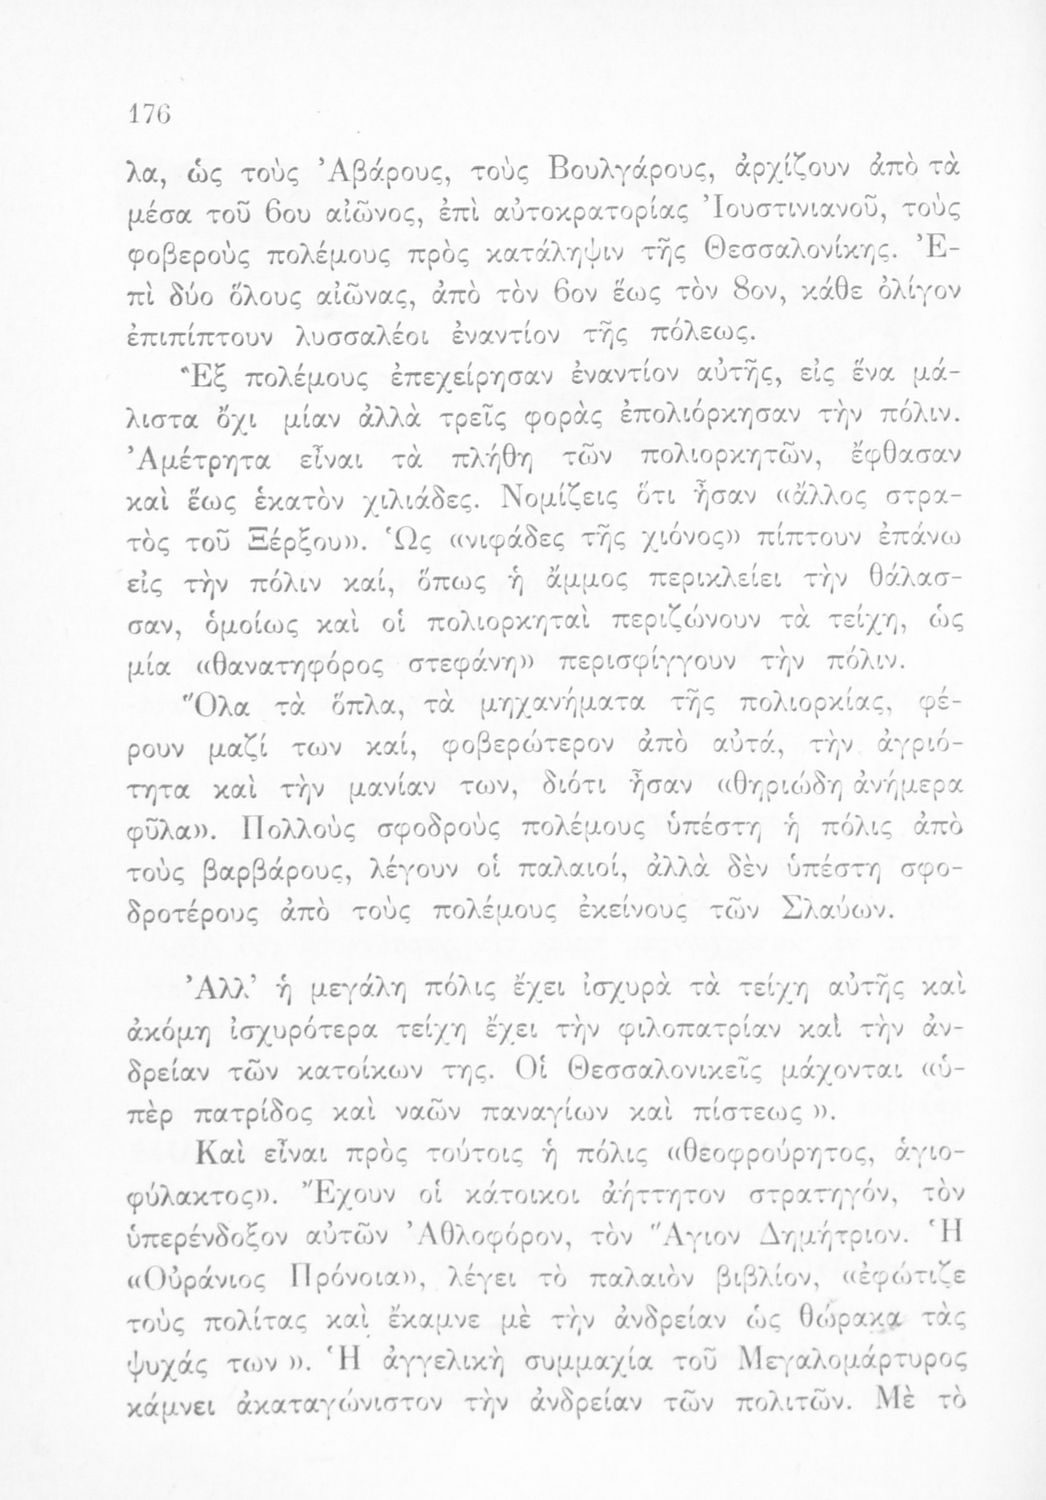 176
λα, ὡς τοὺς Ἀβάρους, τοὺς Βουλγάρους, ἀρχίζουν ἀπὸ τὰ
μέσα τοῦ 6ου αἰῶνος, ἐπὶ αὐτοκρατορίας Ἰουστινιανοῦ, τοὺς
φοβεροὺς πολέμους πρὸς κατάληψιν τῆς Θεσσαλονίκης. Ἐ-
πὶ δύο ὅλους αἰῶνας, ἀπὸ τὸν 6ον ἕως τὸν 8ον, κάθε ὀλίγον
ἐπιπίπτουν λυσσαλέοι ἐναντίον τῆς πόλεως.
Ἓξ πολέμους ἐπεχείρησαν ἐναντίον αὐτῆς, εἰς ἕνα μά-
λιστα ὄχι μίαν ἀλλὰ τρεῖς φορὰς ἐπολιόρκησαν τὴν πόλιν.
Ἀμέτρητα εἶναι τὰ πλήθη τῶν πολιορκητῶν, ἔφθασαν
καὶ ἕως ἑκατὸν χιλιάδες. Νομίζεις ὅτι ἦσαν «ἄλλος στρα-
τὸς τοῦ Ξέρξου». Ὡς «νιφάδες τῆς χιόνος» πίπτουν ἐπάνω
εἰς τὴν πόλιν καί, ὅπως ἡ ἄμμος περικλείει τὴν θάλασ-
σαν, ὁμοίως καὶ οἱ πολιορκηταὶ περιζώνουν τὰ τείχη, ὡς
μία «θανατηφόρος στεφάνη» περισφίγγουν τὴν πόλιν.
Ὅλα τὰ ὅπλα, τὰ μηχανήματα τῆς πολιορκίας, φέ-
ρουν μαζί των καί, φοβερώτερον ἀπὸ αὐτά, τὴν ἀγριό-
τητα καὶ τὴν μανίαν των, διότι ἦσαν «θηριώδη ἀνήμερα
φῦλα». Πολλοὺς σφοδροὺς πολέμους ὑπέστη ἡ πόλις ἀπὸ
τοὺς βαρβάρους, λέγουν οἱ παλαιοί, ἀλλὰ δὲν ὑπέστη σφο-
δροτέρους ἀπὸ τοὺς πολέμους ἐκείνους τῶν Σλαύων.
Ἀλλ’ ἡ μεγάλη πόλις ἔχει ἰσχυρὰ τὰ τείχη αὐτῆς καὶ
ἀκόμη ἰσχυρότερα τείχη ἔχει τὴν φιλοπατρίαν καὶ τὴν ἀν-
δρείαν τῶν κατοίκων της. Οἱ Θεσσαλονικεῖς μάχονται «ὑ-
πὲρ πατρίδος καὶ ναῶν παναγίων καὶ πίστεως».
Καὶ εἶναι πρὸς τούτοις ἡ πόλις «θεοφρούρητος, ἁγιο-
φύλακτος». Ἔχουν οἱ κάτοικοι ἀήττητον στρατηγόν, τὸν
ὑπερένδοξον αὐτῶν Ἀθλοφόρον, τὸν Ἅγιον Δημήτριον. Ἡ
«Οὐράνιος Πρόνοια», λέγει τὸ παλαιὸν βιβλίον, «ἐφώτιζε
τοὺς πολίτας καὶ ἔκαμνε μὲ τὴν ἀνδρείαν ὡς θώρακα τὰς
ψυχάς των». Ἡ ἀγγελικὴ συμμαχία τοῦ Μεγαλομάρτυρος
κάμνει ἀκαταγώνιστον τὴν ἀνδρείαν τῶν πολιτῶν. Μὲ τὸ